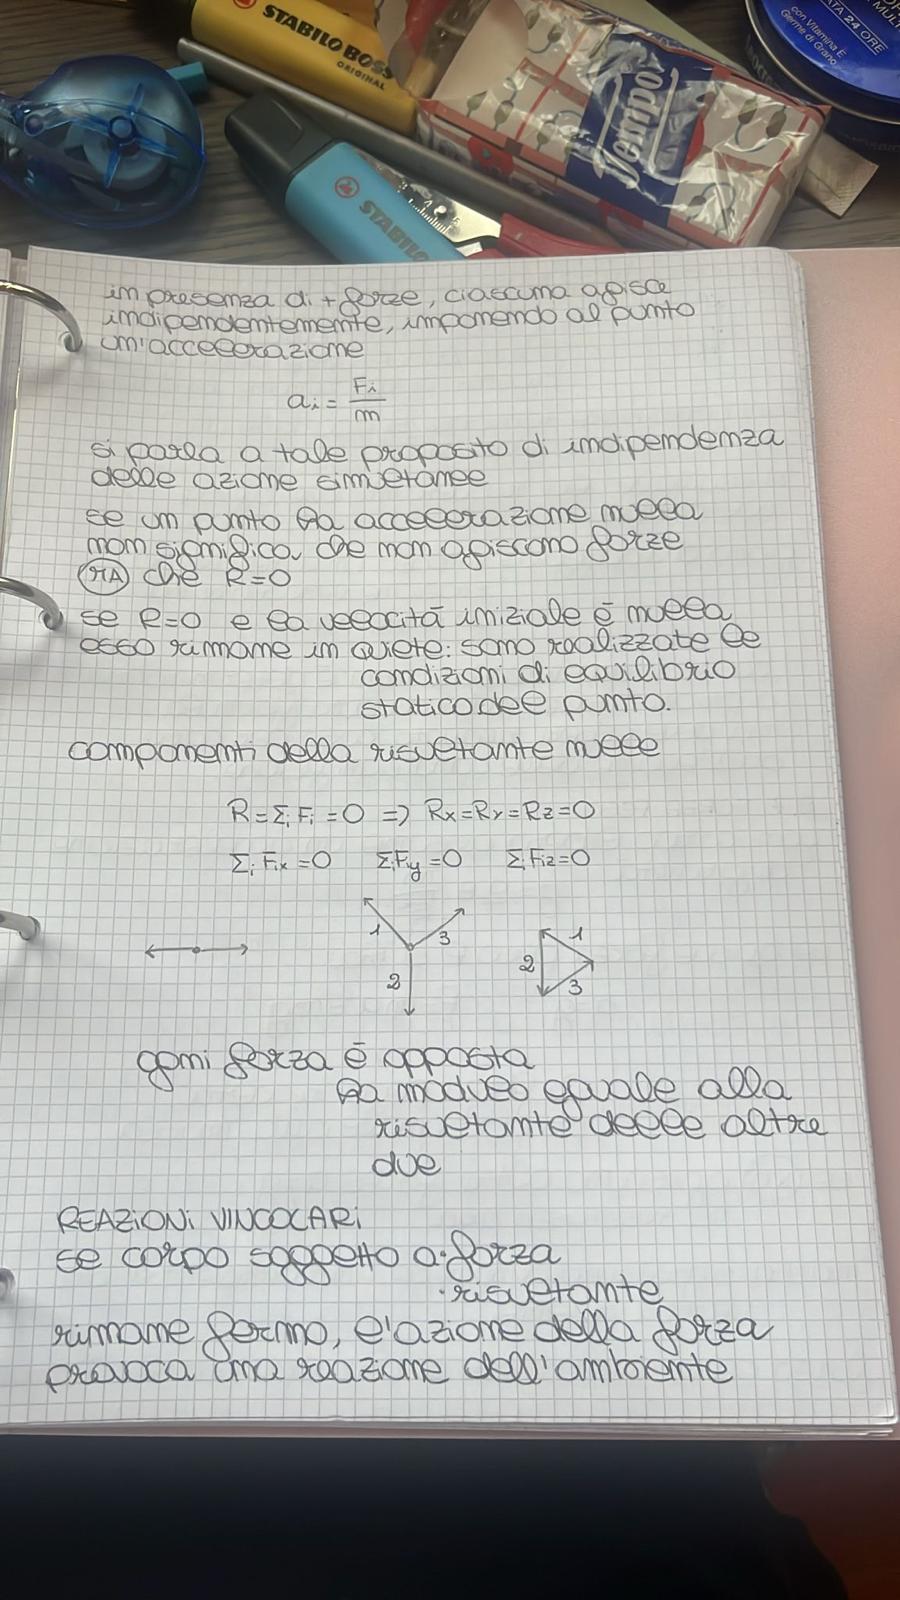 STABILO BOSS
ORIGINAL
STABILO
Tempo
con Vitamina E
Germe di Grano
24 ORE
in presenza di + forze, ciascuna agisce
indipendentemente, imponendo al punto
un'accelerazione
ai = Fi
m
si parla a tale proposito di indipendenza
delle azione simultanee
se un punto ha accelerazione nulla
non significa che non agiscono forze
MA che R=0
se R=0 e la velocità iniziale è nulla
esso rimane in quiete: sono realizzate le
condizioni di equilibrio
statico del punto.
componenti della risultante nulle
R=Σi Fi =0 => Rx=Ry=Rz=0
Σi Fix =0 ΣiFiy =0 Σi Fiz=0
1 3 2
2 1 3
ogni forza è opposta
ha modulo eguale alla
risultante delle altre
due
REAZIONI VINCOLARI
se corpo soggetto a·forza
·risultante
rimane fermo, l'azione della forza
provoca una reazione dell'ambiente